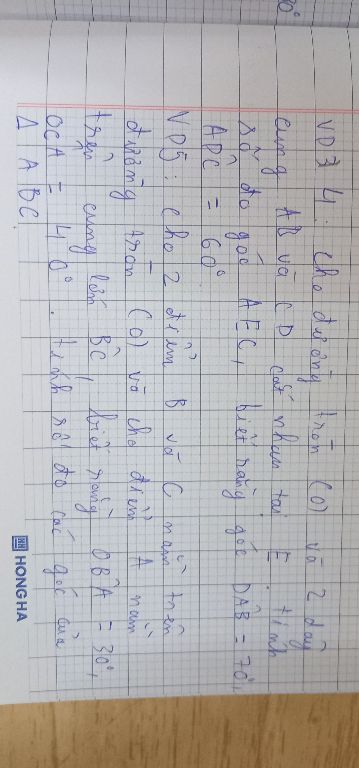 VD 4: Cho đường tròn (O) và 2 dây
cung AB và CD cắt nhau tại E. tính
số đo góc AEC, biết rằng góc DÂB = 70°,
ADC = 60°
VD5: Cho 2 điểm B và C nằm trên
đường tròn (O) và cho điểm A nằm
trên cung lớn BC, biết rằng OBA = 30°,
OCA = 40°. tính số đo các góc của
Δ ABC
HONG HA